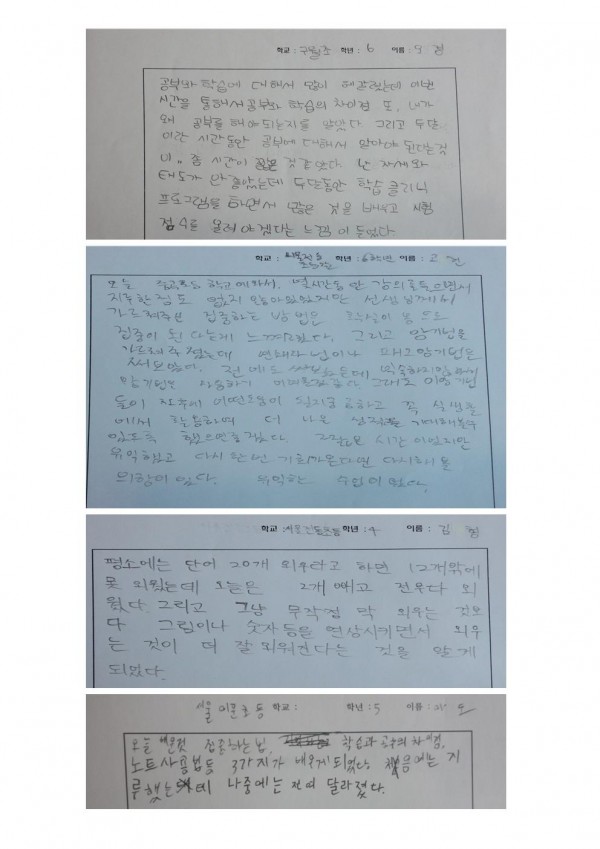 학교 : 구월초 학년 : 6 이름 :
공부와 학습에 대해서 많이 헤갈렸는데 이번
시간을 통해서 공부와 학습의 차이점 또, 내가
왜 공부를 해야 되는지를 알았다 그리고 두단
이란 시간동안 공부에 대해서 알아야 된다는 것
이 좀 시간이 짧은 것 같았다. 난 자세와
태도가 안좋았는데 두단동안 학습클리닉
프로그램을 하면서 많은 것을 배우고 시험
점수를 올려야겠다는 느낌이 들었다
학교 : 학년 : 6학년 이름 : 고 건
오늘 학교에 와서, 열시간동안 강의를 들으면서
지루한점도 없지 않아 있었지만 선생님께서
가르쳐주신 집중하는 방법은 확실이 눈으로
집중이 된다는게 느껴졌다. 그리고 암기법을
가르쳐 주셨는데 연쇄 법이나 암기법은
전에도 익숙하지 않아
암기법은 사용하기 그래도 이 암기법
들이 어떤도움이 될지 궁금하고 꼭 실생활
에서 활용하여 더 나은 성적을 기대해볼수
있도록 했으면 좋겠다. 시간이었지만
유익했고 다시 한번 기회가 온다면 다시해 볼
의향이 있다. 유익한 수업이었다.
학교 : 학년 : 4 이름 : 김 형
평소에는 단어 20개 외우라고 하면 12개밖에
못 외웠는데 오늘은 2개 빼고 전부다 외
웠다. 그리고 그냥 무작정 막 외우는 것보
다 그림이나 숫자등을 연상시키면서 외우
는 것이 더 잘 외워진다는 것을 알게
되었다.
서울 이문초등 학교 : 학년 : 5 이름 :
오늘 배운것 집중하는 법, 학습과 공부의 차이점,
노트사용법등 3가지가 배우게되었다. 처음에는 지
루했는데 나중에는 전여 달라졌다.